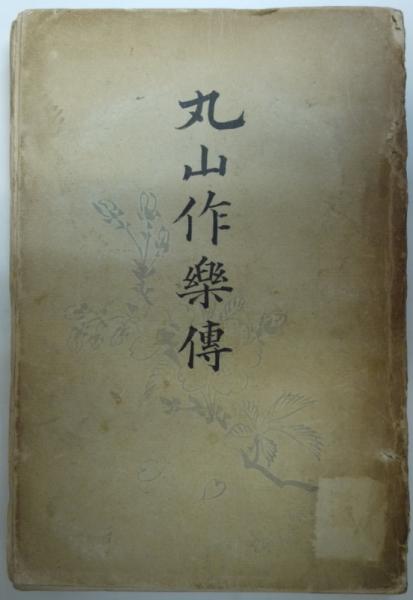 丸山作樂傳